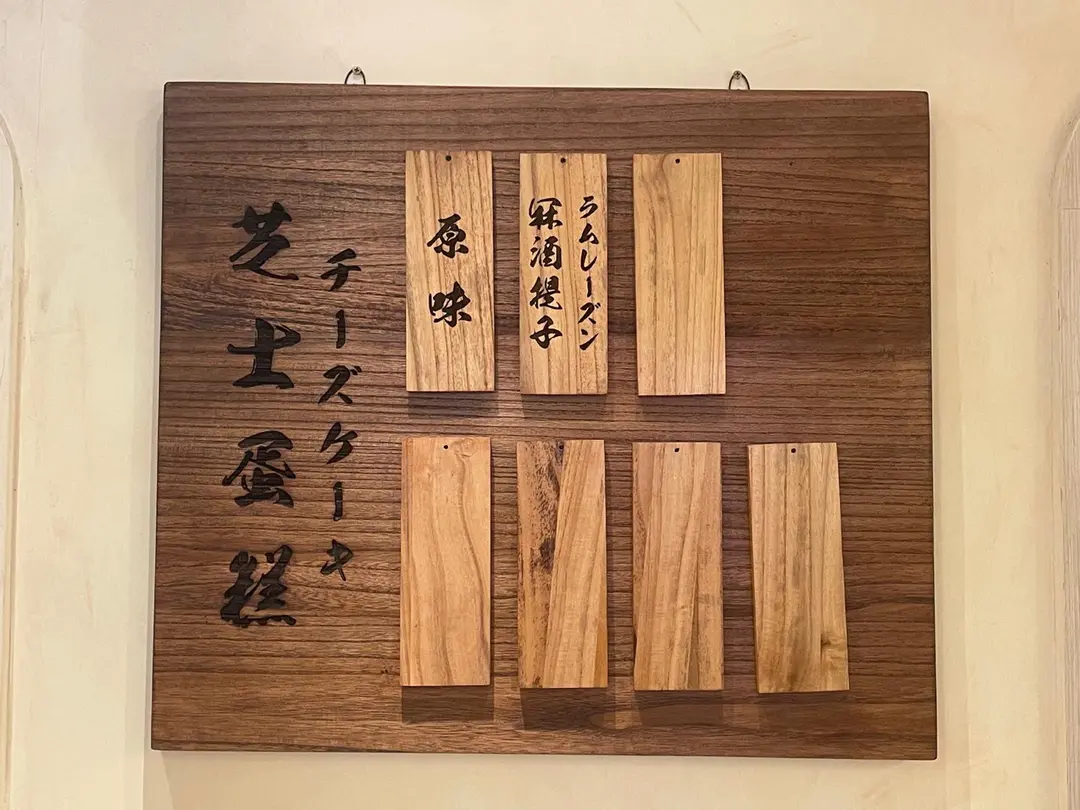 芝士蛋糕
チーズケーキ
原味
冧酒提子
ラムレーズン